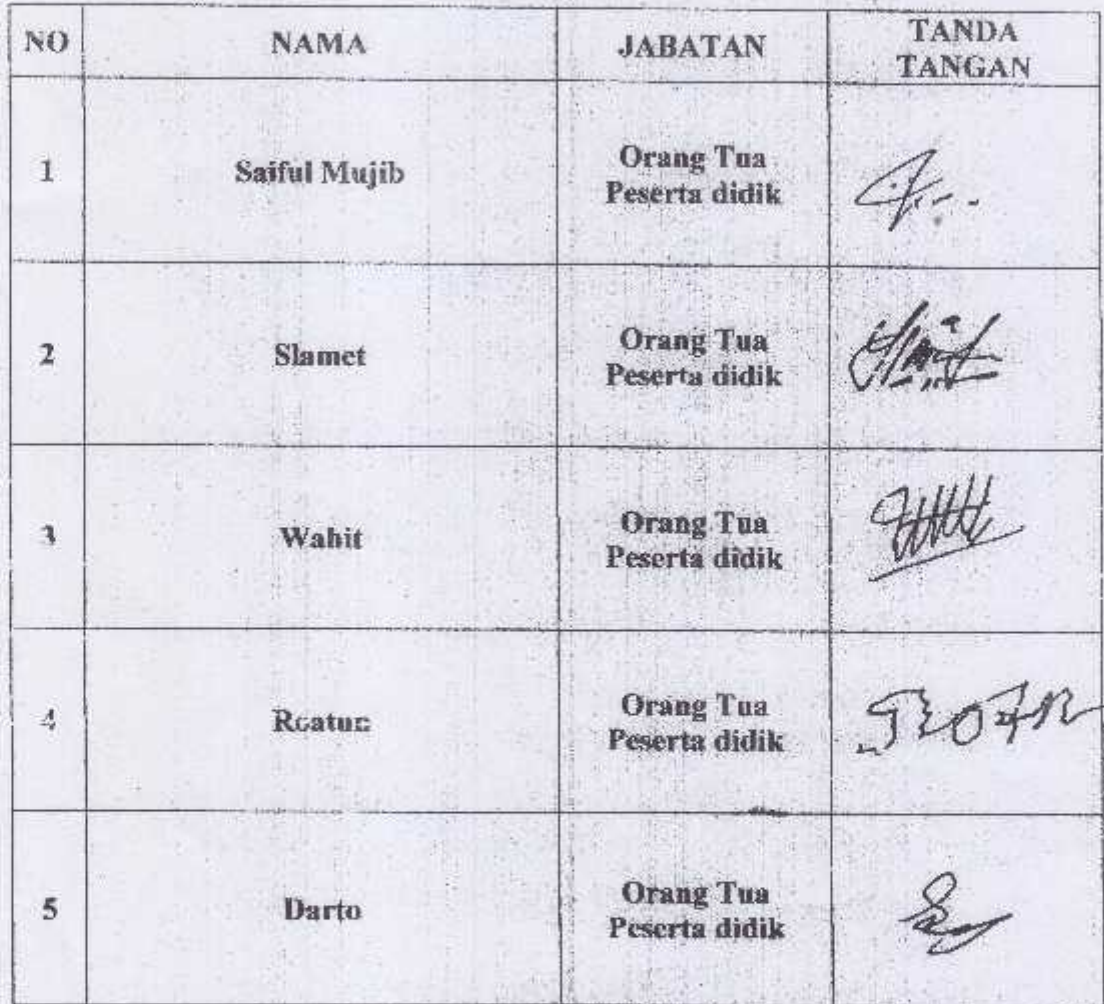 NO NAMA JABATAN TANDA
TANGAN
1 Saiful Mujib Orang Tua
Peserta didik
2 Slamet Orang Tua
Peserta didik
3 Wahit Orang Tua
Peserta didik
4 Roatun Orang Tua
Peserta didik
5 Darto Orang Tua
Peserta didik